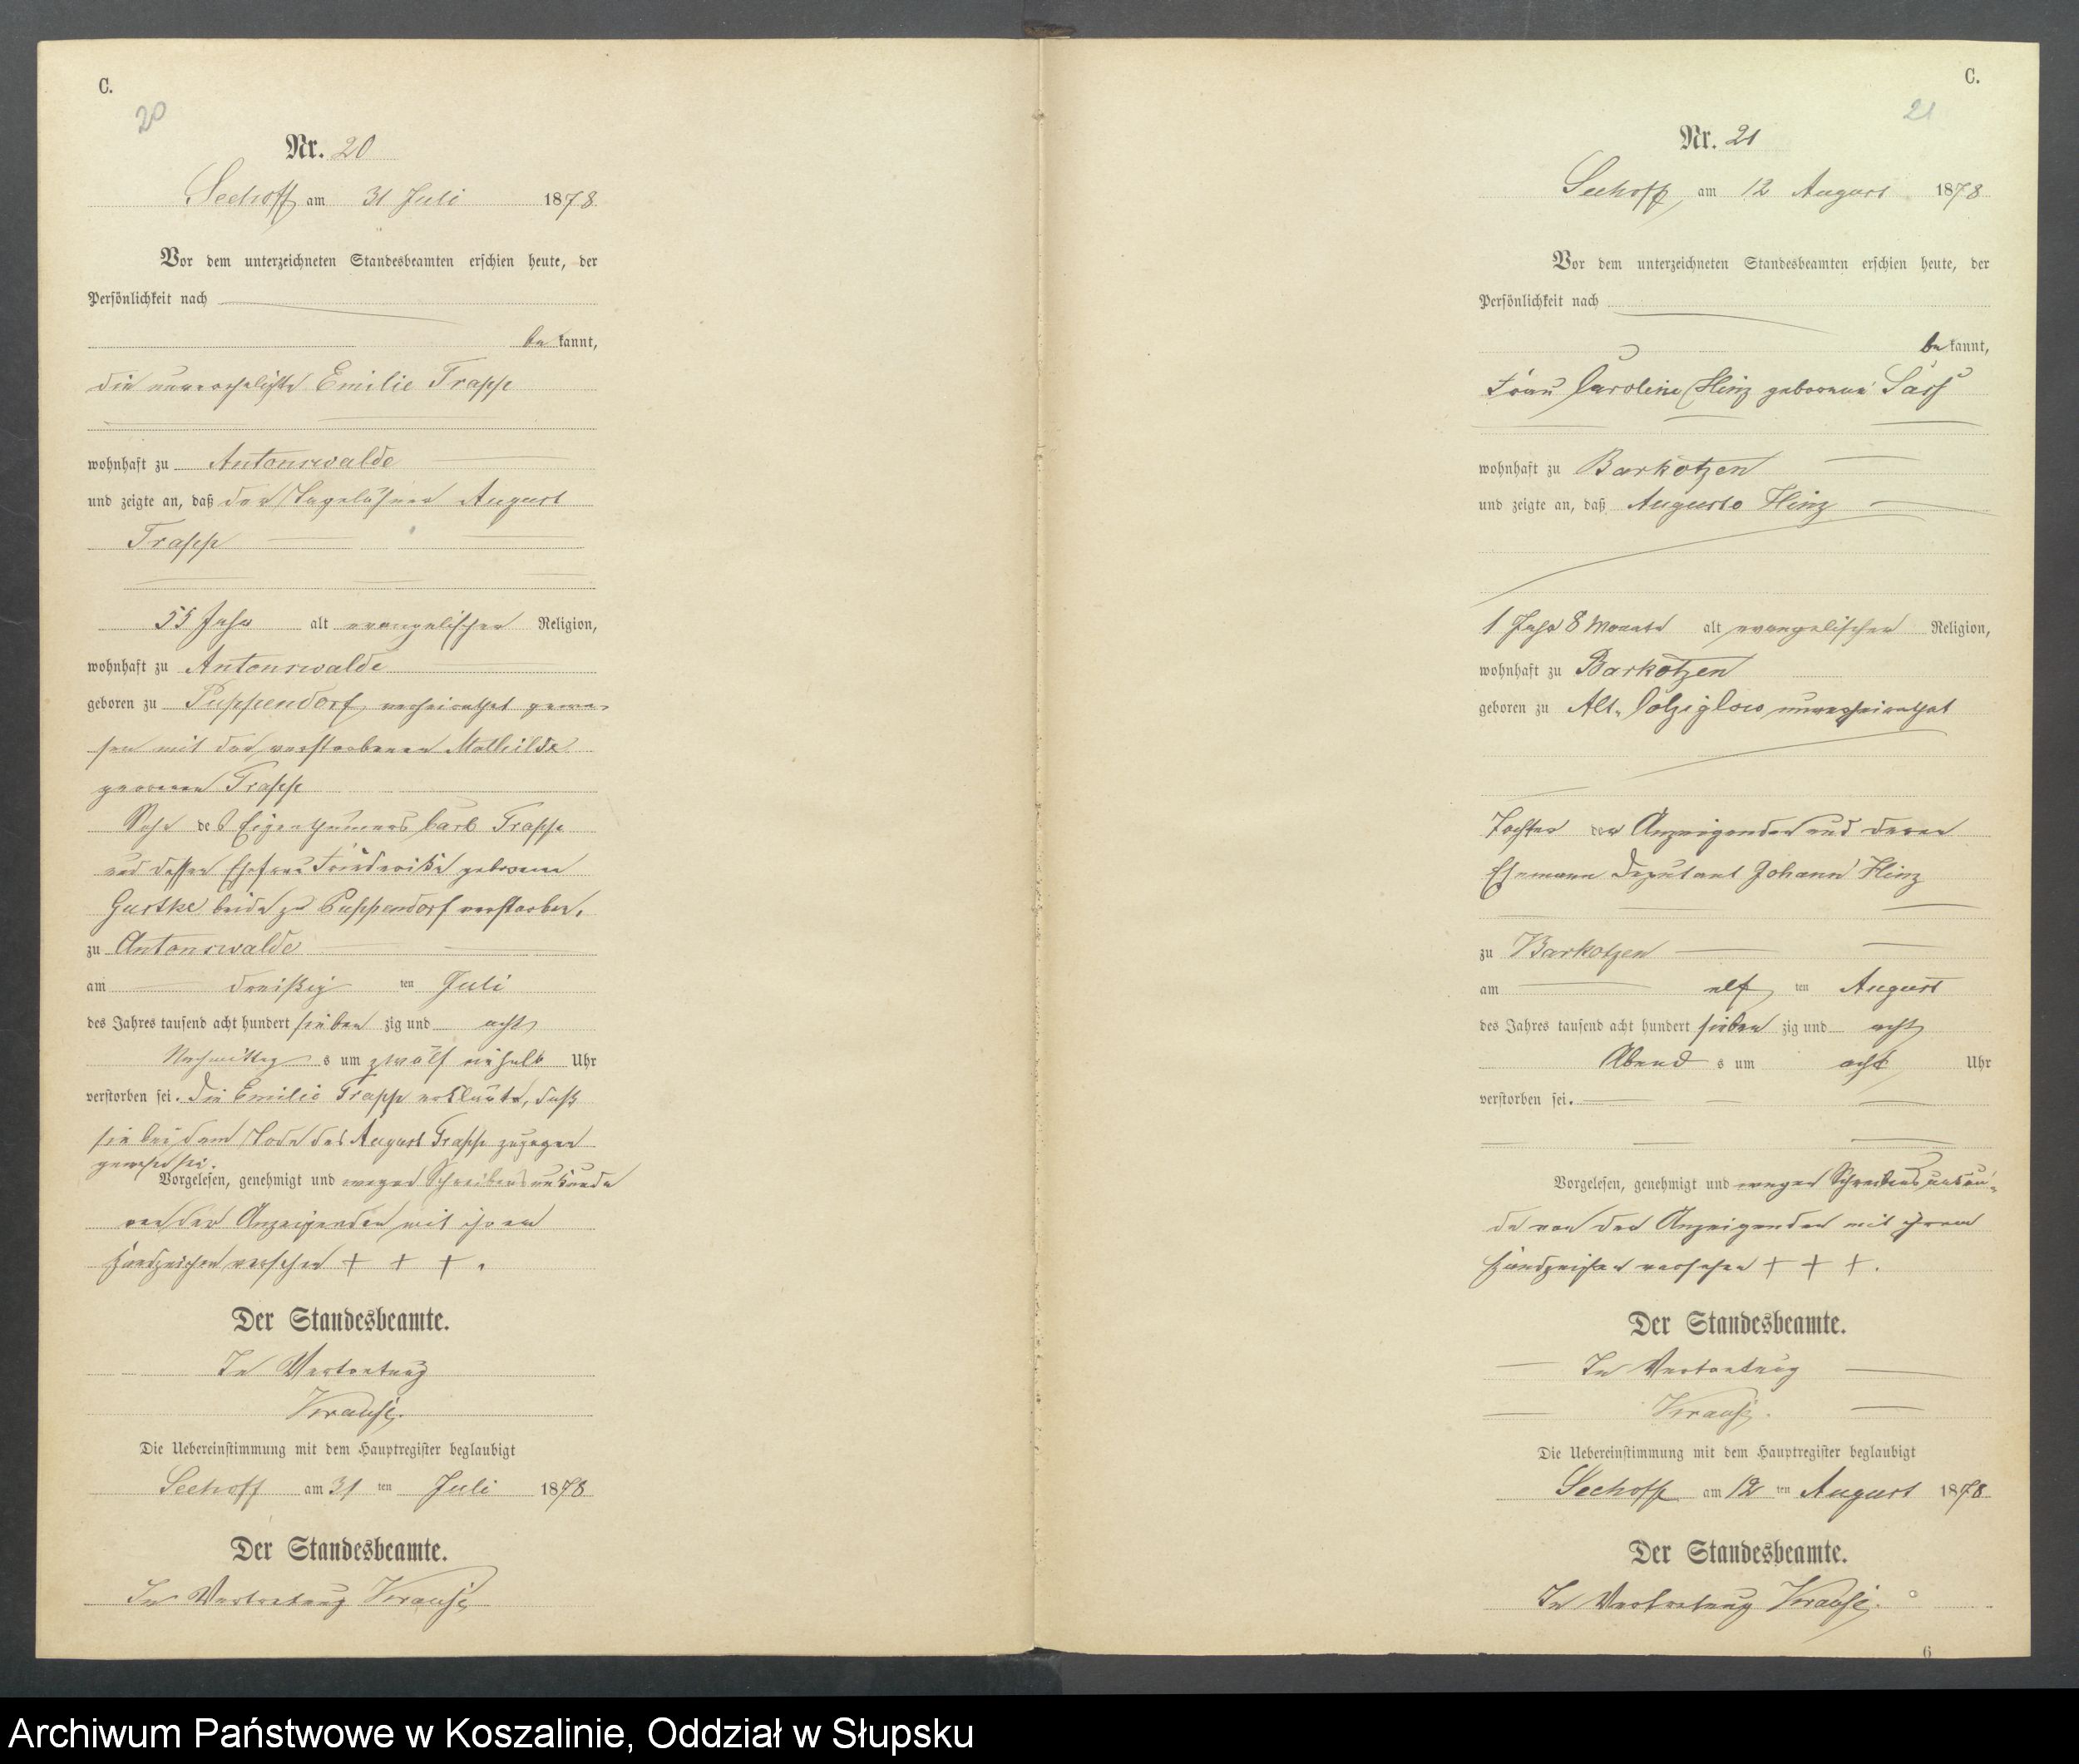 C.
20
Nr. 20
Seehoff am 31 Juli 1878
Vor dem unterzeichneten Standesbeamten erschien heute, der
Persönlichkeit nach
be kannt,
die unverehelichte Emilie Trapp
wohnhaft zu Antonswalde
und zeigte an, daß der Tagelöhner August
Trapp
55 Jahr alt evangelischer Religion,
wohnhaft zu Antonswalde
geboren zu Puppendorf, verheirathet gewe-
sen mit der verstorbenen Mathilde
geborenen Trapp
Sohn des Eigenthümers Carl Trapp
und dessen Ehefrau Friederike geborene
Gustke beide zu Puppendorf verstorben,
zu Antonswalde
am dreißig ten Juli
des Jahres tausend acht hundert sieben zig und acht
Nachmittag s um zwölf einhalb Uhr
verstorben sei. Die Emilie Trapp erklärte, daß
sie bei dem Tode des August Trapp zugegen
gewesen sei.
Vorgelesen, genehmigt und wegen Schreibensunkunde
von der Anzeigenden mit ihrem
Handzeichen versehen + + + .
Der Standesbeamte.
In Vertretung
Krause.
Die Uebereinstimmung mit dem Hauptregister beglaubigt
Seehoff am 31 ten Juli 1878
Der Standesbeamte.
In Vertretung Krause
C.
21
Nr. 21
Seehoff, am 12 August 1878
Vor dem unterzeichneten Standesbeamten erschien heute, der
Persönlichkeit nach
be kannt,
Frau Caroline Hinz geborene
wohnhaft zu Barkotzen
und zeigte an, daß Auguste Hinz
1 Jahr 8 Monate alt evangelischer Religion,
wohnhaft zu Barkotzen
geboren zu Alt-Colziglow unverheirathet
Tochter der Anzeigenden und deren
Ehemann Deputant Johann Hinz
zu Barkotzen
am elf ten August
des Jahres tausend acht hundert sieben zig und acht
Abend s um acht Uhr
verstorben sei.
Vorgelesen, genehmigt und wegen Schreibensunkun-
de von der Anzeigenden mit ihrem
Handzeichen versehen + + + .
Der Standesbeamte.
In Vertretung
Krause.
Die Uebereinstimmung mit dem Hauptregister beglaubigt
Seehoff am 12 ten August 1878
Der Standesbeamte.
In Vertretung Krause.
6
Archiwum Państwowe w Koszalinie, Oddział w Słupsku